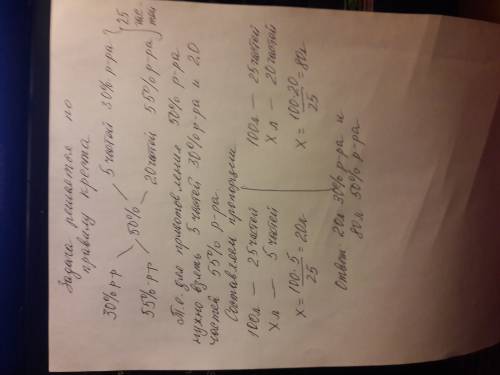 Задача решается по
правилу креста
30% р-р 5 частей 30% р-ра 25
50% час
55% р-р 20 частей 55% р-ра тей
Т.о. для приготовления 50% р-ра
нужно взять 5 частей 30% р-ра и 20
частей 55% р-ра.
Составляем пропорции
100л — 25 частей 100л — 25 частей
х л — 5 частей х л — 20 частей
х = 100·5/25 = 20л х = 100·20/25 = 80л
Ответ: 20л 30% р-ра и
80л 50% р-ра